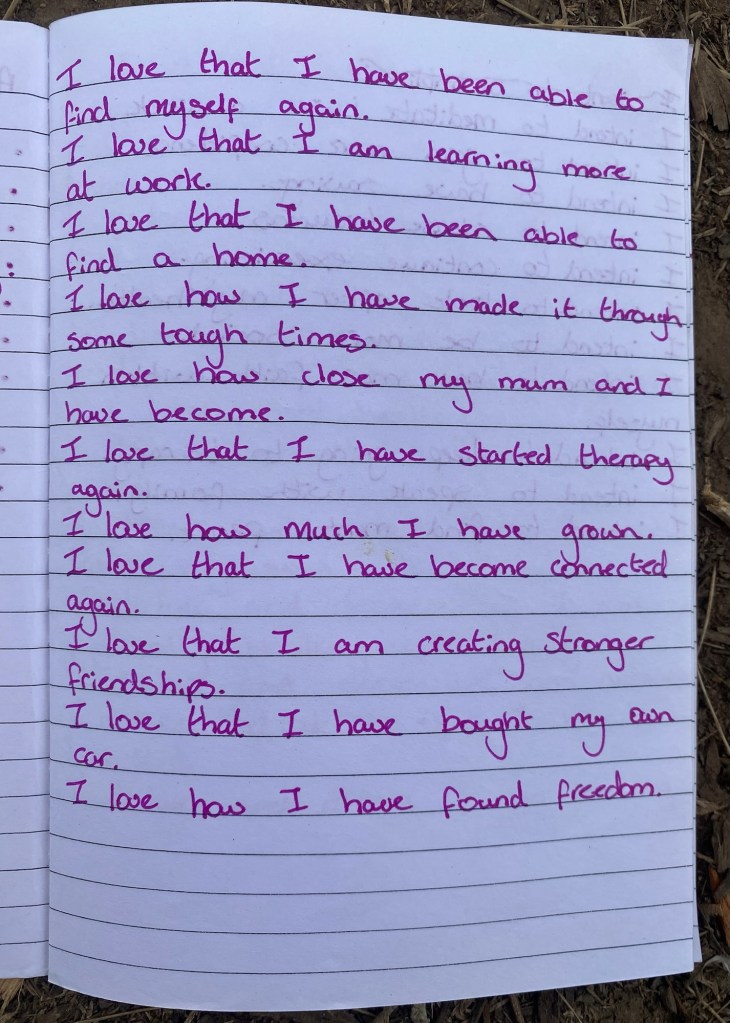 I love that I have been able to
find myself again.
I love that I am learning more
at work.
I love that I have been able to
find a home.
I love how I have made it through
some tough times.
I love how close my mum and I
have become.
I love that I have started therapy
again.
I love how much I have grown.
I love that I have become connected
again.
I love that I am creating stronger
friendships.
I love that I have bought my own
car.
I love how I have found freedom.